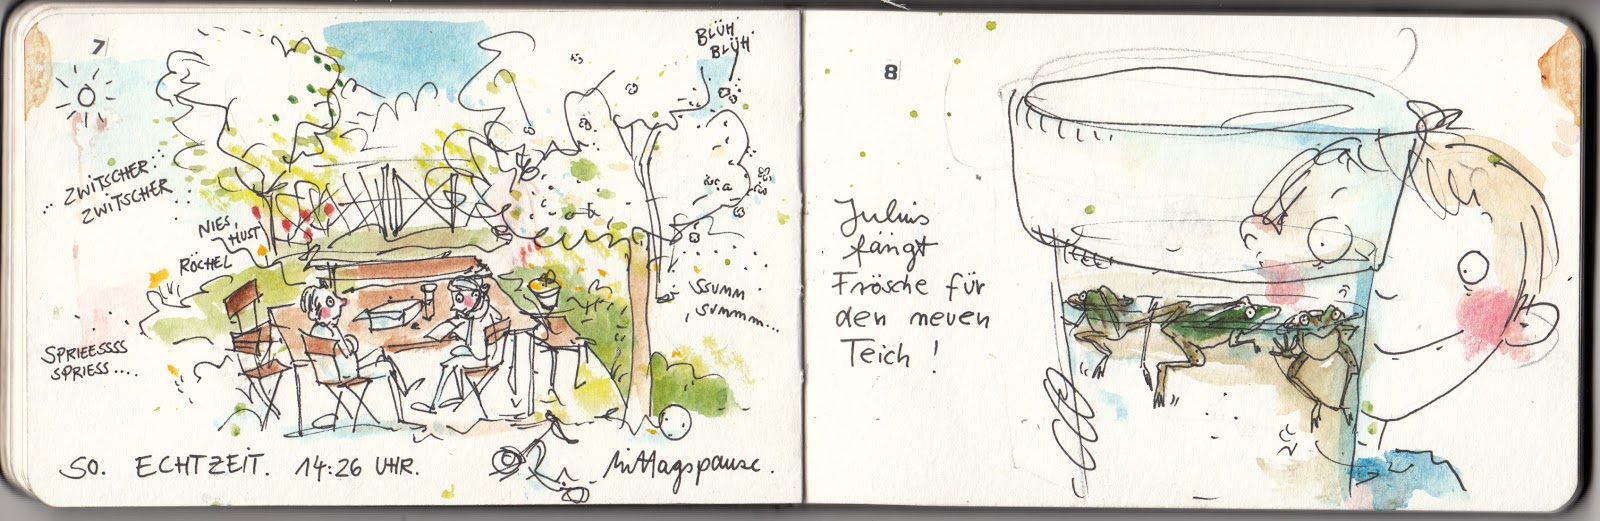 7
BLÜH
BLÜH
ZWITSCHER
ZWITSCHER
NIES,
HUST
RÖCHEL
SSUMM
SUMMM...
SPRIEESSSS
SPRIESS....
SO. ECHTZEIT. 14:26 UHR. Mittagspause.
8
Julius
fängt
Frösche für
den neuen
Teich!